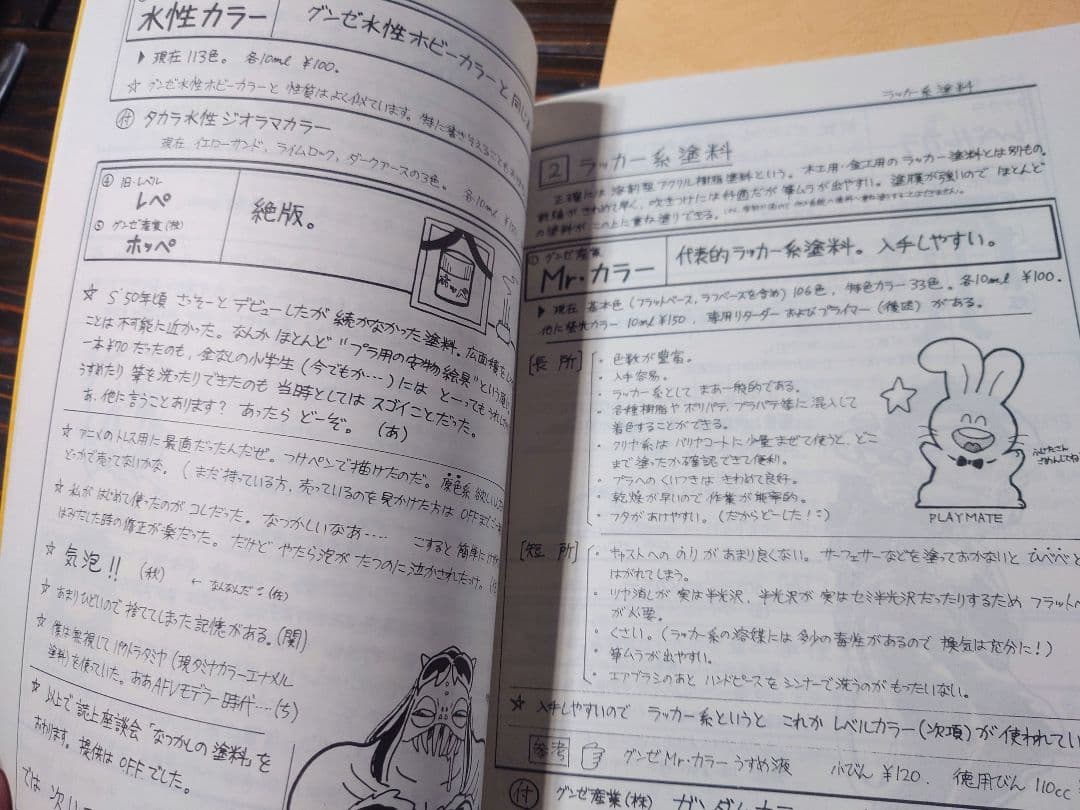 水性カラー
グンゼ水性ホビーカラーと同じ
▶ 現在 113色。各10ml ¥100.
☆ グンゼ水性ホビーカラーと 性質はよく似ています。特に書き
付 タカラ水性ジオラマカラー
現在 イエローサンド、ライムロック、ダークアースの3色。各10ml
旧・レベル
レペ
グンゼ産業(株)
ホッペ
絶版。
ホッペ
☆ S'50年頃 さっそーと デビューしたが 続かなかった塗料。広面積を
ことは不可能に近かった。なんか ほとんど "プラ用の安物絵具" という
一本¥70だったのも、金なしの小学生(今でもか…)には とーってもうれし
うすめたり 筆を洗ったりできたのも 当時としては スゴイことだった。
あ、他に言うことあります? あったら どーぞ。(あ)
☆ アニメのトレス用に 最適だったんだぜ。つけペンで描けたのだ。原色系
どっかで売ってないかな。(まだ持っている方、売っているのを見かけた方は OFFまで
☆ 私が はじめて使ったのが コレだった。なつかしいなあ…… こすると 簡単に
はみだした時の修正が楽だった。だけど やたら泡が たつのに泣かされたっけ。
☆ 気泡!! (秋) ← なんなんだ (佐)
☆ あまりひどいので 捨ててしまった記憶がある。(関)
☆ 僕は無視して パクトラタミヤ(現タミヤカラーエナメル
塗料)を使っていた。ああAFVモデラー時代…(ち)
☆ 以上で 誌上座談会「なつかしの塗料」を
おわります。提供は OFF でした。
では 次い
ラッカー系塗料
2 ラッカー系塗料
正確には 溶剤型アクリル樹脂塗料という。木工用・金工用の ラッカー塗料とは別もの。
乾燥が きわめて早く、吹きつけには好適だが 筆ムラが出やすい。塗膜が強いので ほとんど
の塗料が この上に重ね塗りできる。
① グンゼ産業
Mr.カラー
代表的ラッカー系塗料。入手しやすい。
▶ 現在 基本色(フラットベース、ラフベースを含め)106色、特色カラー33色。各10ml ¥100.
他に蛍光カラー 10ml ¥150、専用リターダー およびプライマー(後述)がある。
[長 所]
・ 色数が豊富。
・ 入手容易。
・ ラッカー系として まあ一般的である。
・ 各種樹脂や ポリパテ、プラパテ等に混入して
着色することができる。
・ クリヤ系は バリヤコートに少量まぜて使うと、どこ
まで塗ったか確認できて便利。
・ プラへの くいつきは きわめて良好。
・ 乾燥が早いので 作業が能率的。
・ フタがあけやすい。(だからどーした!)
PLAYMATE
[短 所]
・ キャストへの のりがあまり良くない。サーフェサーなどを塗っておかないと ひべべと
はがれてしまう。
・ ツヤ消しが 実は半光沢、半光沢が 実はセミ半光沢だったりするため フラットベ
が必要。
・ くさい。(ラッカー系の溶媒には 多少の毒性があるので 換気は充分に!)
・ 筆ムラが出やすい。
・ エアブラシのあと ハンドピースを シンナーで洗うのが もったいない。
☆ 入手しやすいので ラッカー系というと これか レベルカラー(次項)が使われてい
参考 グンゼMr.カラーうすめ液 小びん ¥120. 徳用びん 110cc
付 グンゼ産業(株) ガンダムカラー